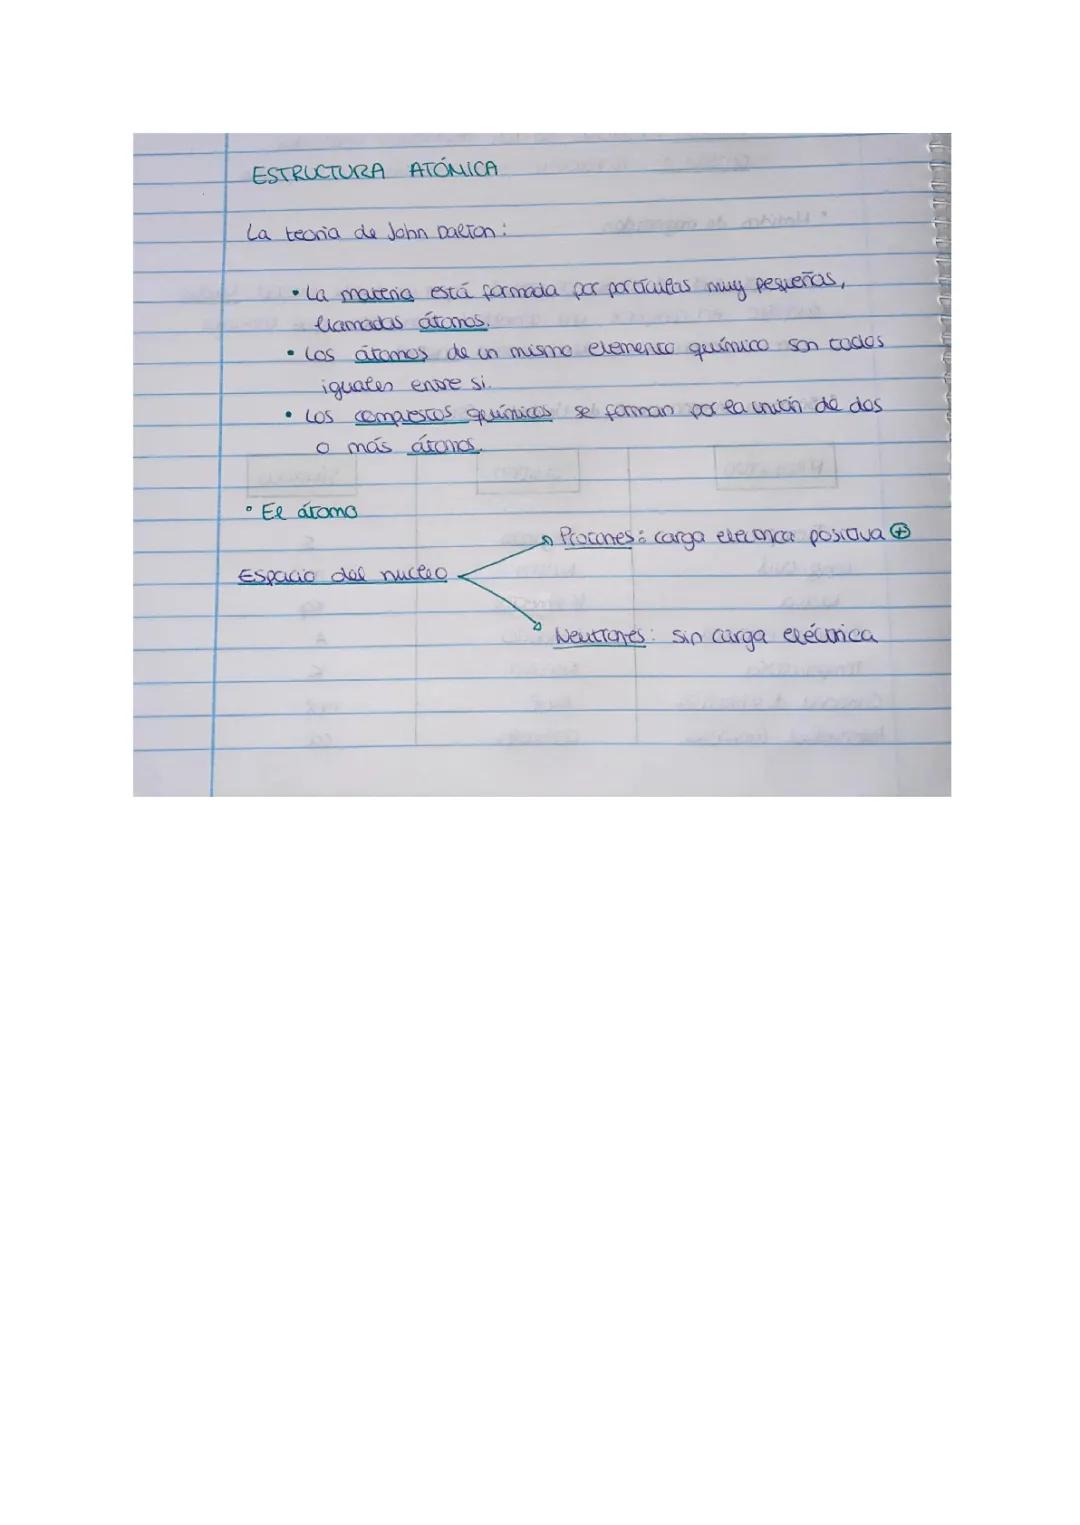 ESTRUCTURA ATÓMICA
La teoria de John Dalton:
• La materia está formada por partículas muy pequeñas,
llamadas átomos.
• Los átomos de un mismo elemento químico son todos
iguales entre si.
• Los compuestos químicos se forman por la unión de dos
o más átomos.
• El átomo
Protones: carga eléctrica positiva ⊕
Espacio del nucleo
Neutrones: sin carga eléctrica